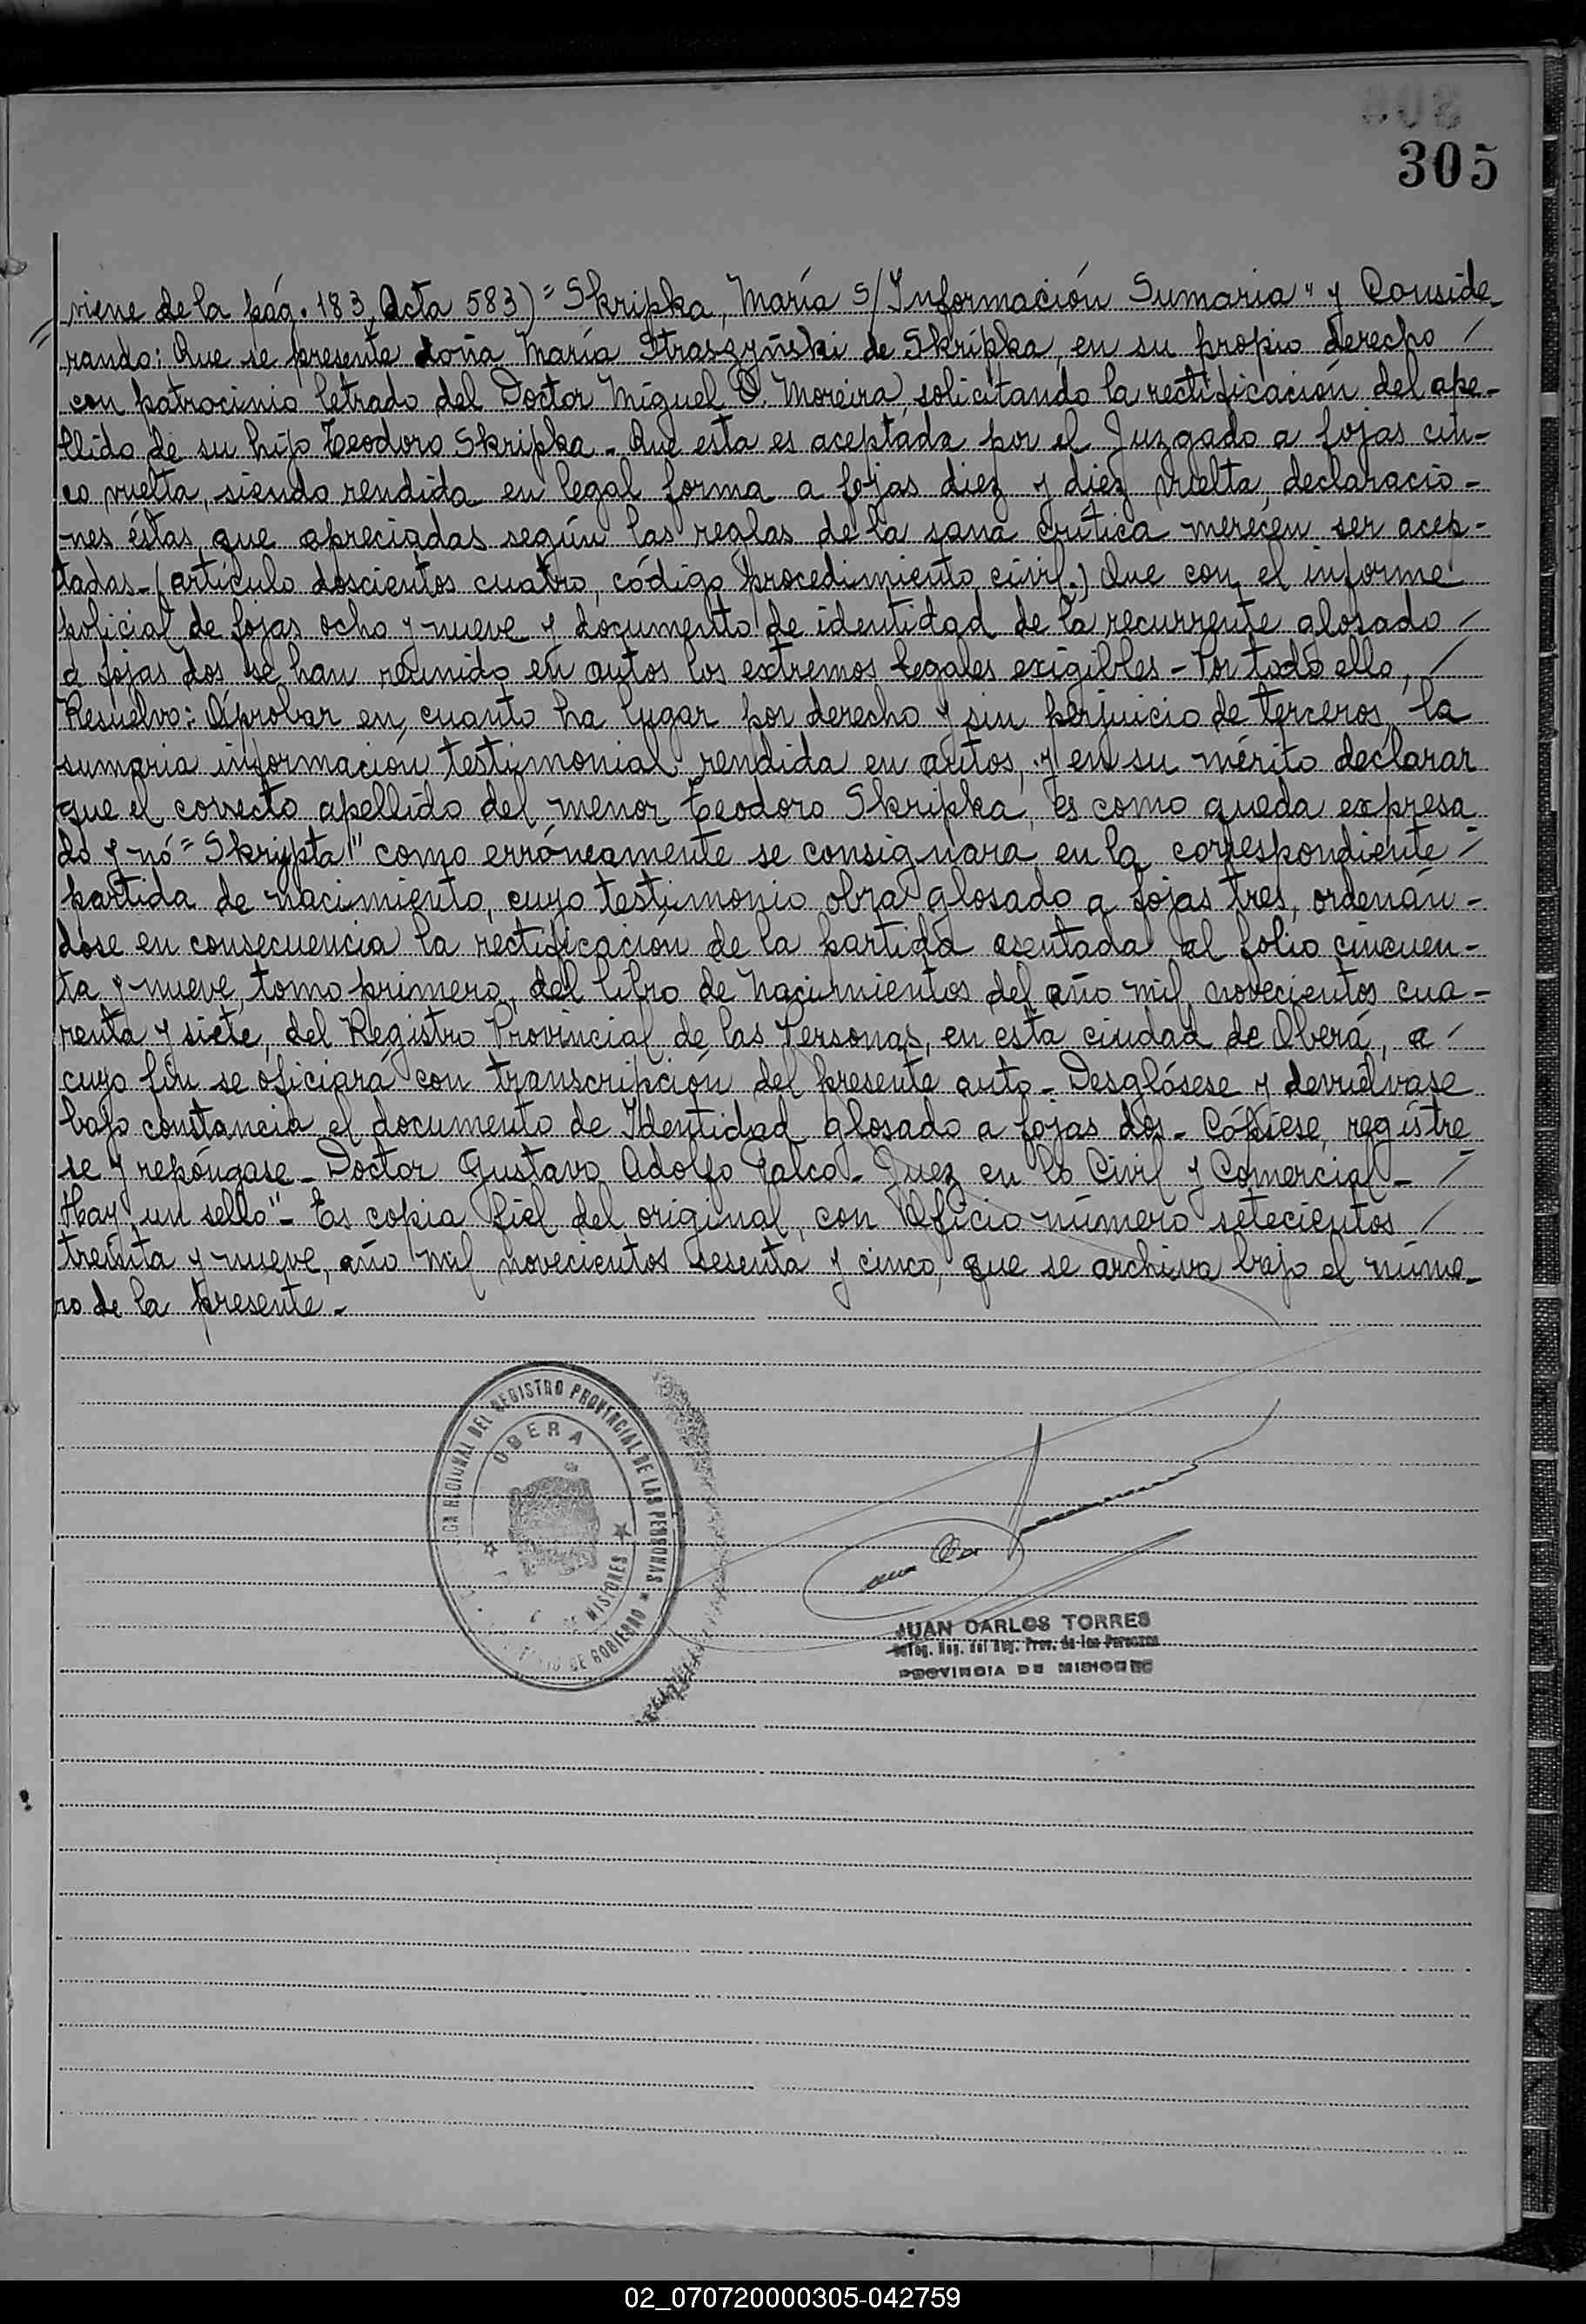 305
viene de la pág. 183, Acta 583) "Skripka, María s/Información Sumaria" y Conside-
rando: Que se presente doña María Straszyñski de Skripka, en su propio derecho /
con patrocinio letrado del Doctor Miguel O. Moreira, solicitando la rectificación del ape-
llido de su hijo Teodoro Skripka - Que esta es aceptada por el Juzgado a fojas cin-
co vuelta, siendo rendida en legal forma a fojas diez y diez vuelta, declaracio-
nes éstas, que apreciadas según las reglas de la sana crítica merecen ser acep-
tadas - (artículo doscientos cuatro, código procedimiento civil.) Que con el informe
policial de fojas ocho y nueve y documento de identidad de la recurrente glosado /
a fojas dos se han reunido en autos los extremos legales exigibles - Por todo ello, /
Resuelvo: Aprobar en cuanto ha lugar por derecho y sin perjuicio de terceros, la
sumaria información testimonial rendida en autos, y en su mérito declarar
que el correcto apellido del menor Teodoro Skripka, es como queda expresa
do y nó "Skrypta" como erróneamente se consignara en la correspondiente =
partida de nacimiento, cuyo testimonio obra glosado a fojas tres, ordenán-
dose en consecuencia la rectificación de la partida asentada al folio cincuen-
ta y nueve, tomo primero, del libro de Nacimientos del año mil novecientos cua-
renta y siete, del Registro Provincial de las Personas, en esta ciudad de Oberá, a /
cuyo fín se oficiará con transcripción del presente auto - Desglósese y devuélvase
bajo constancia el documento de Identidad glosado a fojas dos - Cópiese, registre
se y repóngase - Doctor Gustavo Adolfo Falco - Juez en lo Civil y Comercial - /
Hay un sello" - Es copia fiel del original, con Oficio número setecientos /
treinta y nueve, año mil novecientos sesenta y cinco, que se archiva bajo el núme-
ro de la presente -
REGIONAL DEL REGISTRO PROVINCIAL DE LAS PERSONAS
OBERA
DE MISIONES
DE GOBIERNO
JUAN CARLOS TORRES
Reg. Prov. de las Personas
PROVINCIA DE MISIONES
02_070720000305-042759